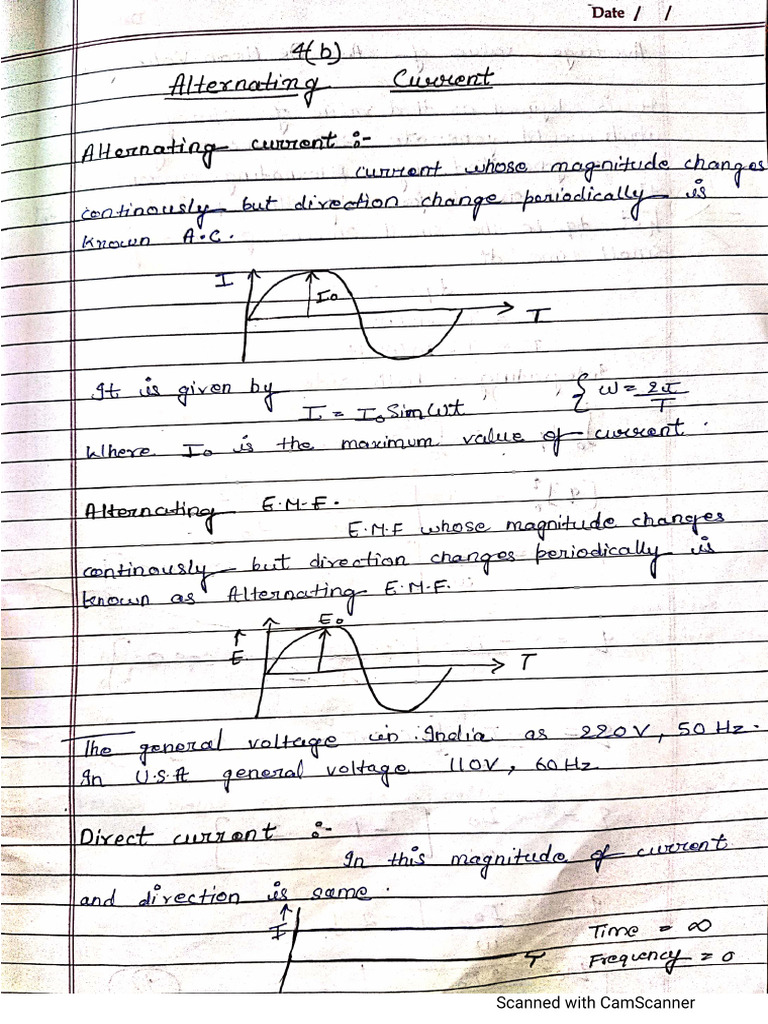 Date / /
4(b)
Alternating Current
Alternating current :-
current whose magnitude changes
continously but direction change periodically is
known A.C.
I
I₀
T
It is given by
I = I₀ Sin ωt { ω = 2π/T
Where I₀ is the maximum value of current.
Alternating E.M.F.
E.M.F whose magnitude changes
continously but direction changes periodically is
known as Alternating E.M.F.
E₀
E
T
The general voltage in India as 220V, 50 Hz.
In U.S.A general voltage 110V, 60Hz
Direct current :-
In this magnitude of current
and direction is same.
I
Time = ∞
T Frequency = 0
Scanned with CamScanner